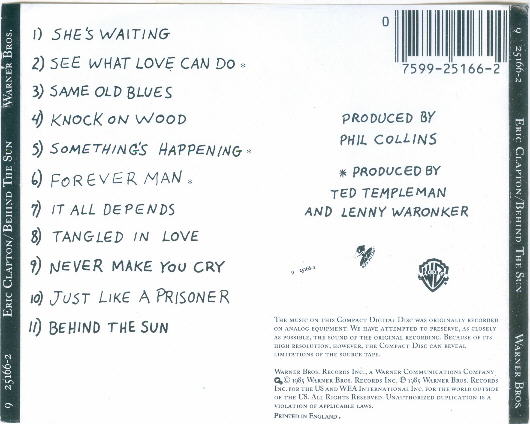 1) SHE'S WAITING
2) SEE WHAT LOVE CAN DO *
3) SAME OLD BLUES
4) KNOCK ON WOOD
5) SOMETHING'S HAPPENING *
6) FOREVER MAN *
7) IT ALL DEPENDS
8) TANGLED IN LOVE
9) NEVER MAKE YOU CRY
10) JUST LIKE A PRISONER
11) BEHIND THE SUN
0
7599-25166-2
PRODUCED BY
PHIL COLLINS
* PRODUCED BY
TED TEMPLEMAN
AND LENNY WARONKER
9 25166-2
THE MUSIC ON THIS COMPACT DIGITAL DISC WAS ORIGINALLY RECORDED
ON ANALOG EQUIPMENT. WE HAVE ATTEMPTED TO PRESERVE, AS CLOSELY
AS POSSIBLE, THE SOUND OF THE ORIGINAL RECORDING. BECAUSE OF ITS
HIGH RESOLUTION, HOWEVER, THE COMPACT DISC CAN REVEAL
LIMITATIONS OF THE SOURCE TAPE.
WARNER BROS. RECORDS INC., A WARNER COMMUNICATIONS COMPANY
© 1985 WARNER BROS. RECORDS INC. ℗ 1985 WARNER BROS. RECORDS
INC. FOR THE US AND WEA INTERNATIONAL INC. FOR THE WORLD OUTSIDE
OF THE US. ALL RIGHTS RESERVED. UNAUTHORIZED DUPLICATION IS A
VIOLATION OF APPLICABLE LAWS.
PRINTED IN ENGLAND.
9 25166-2 ERIC CLAPTON/BEHIND THE SUN WARNER BROS.
9 25166-2 ERIC CLAPTON/BEHIND THE SUN WARNER BROS.